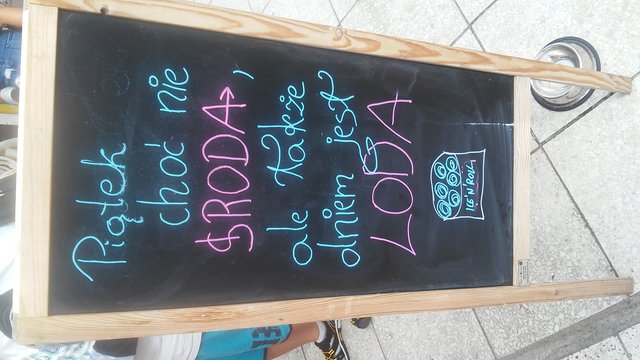 Piątek
choć nie
ŚRODA,
ale także
dniem jest
LODA
ICE 'N' ROLL
13